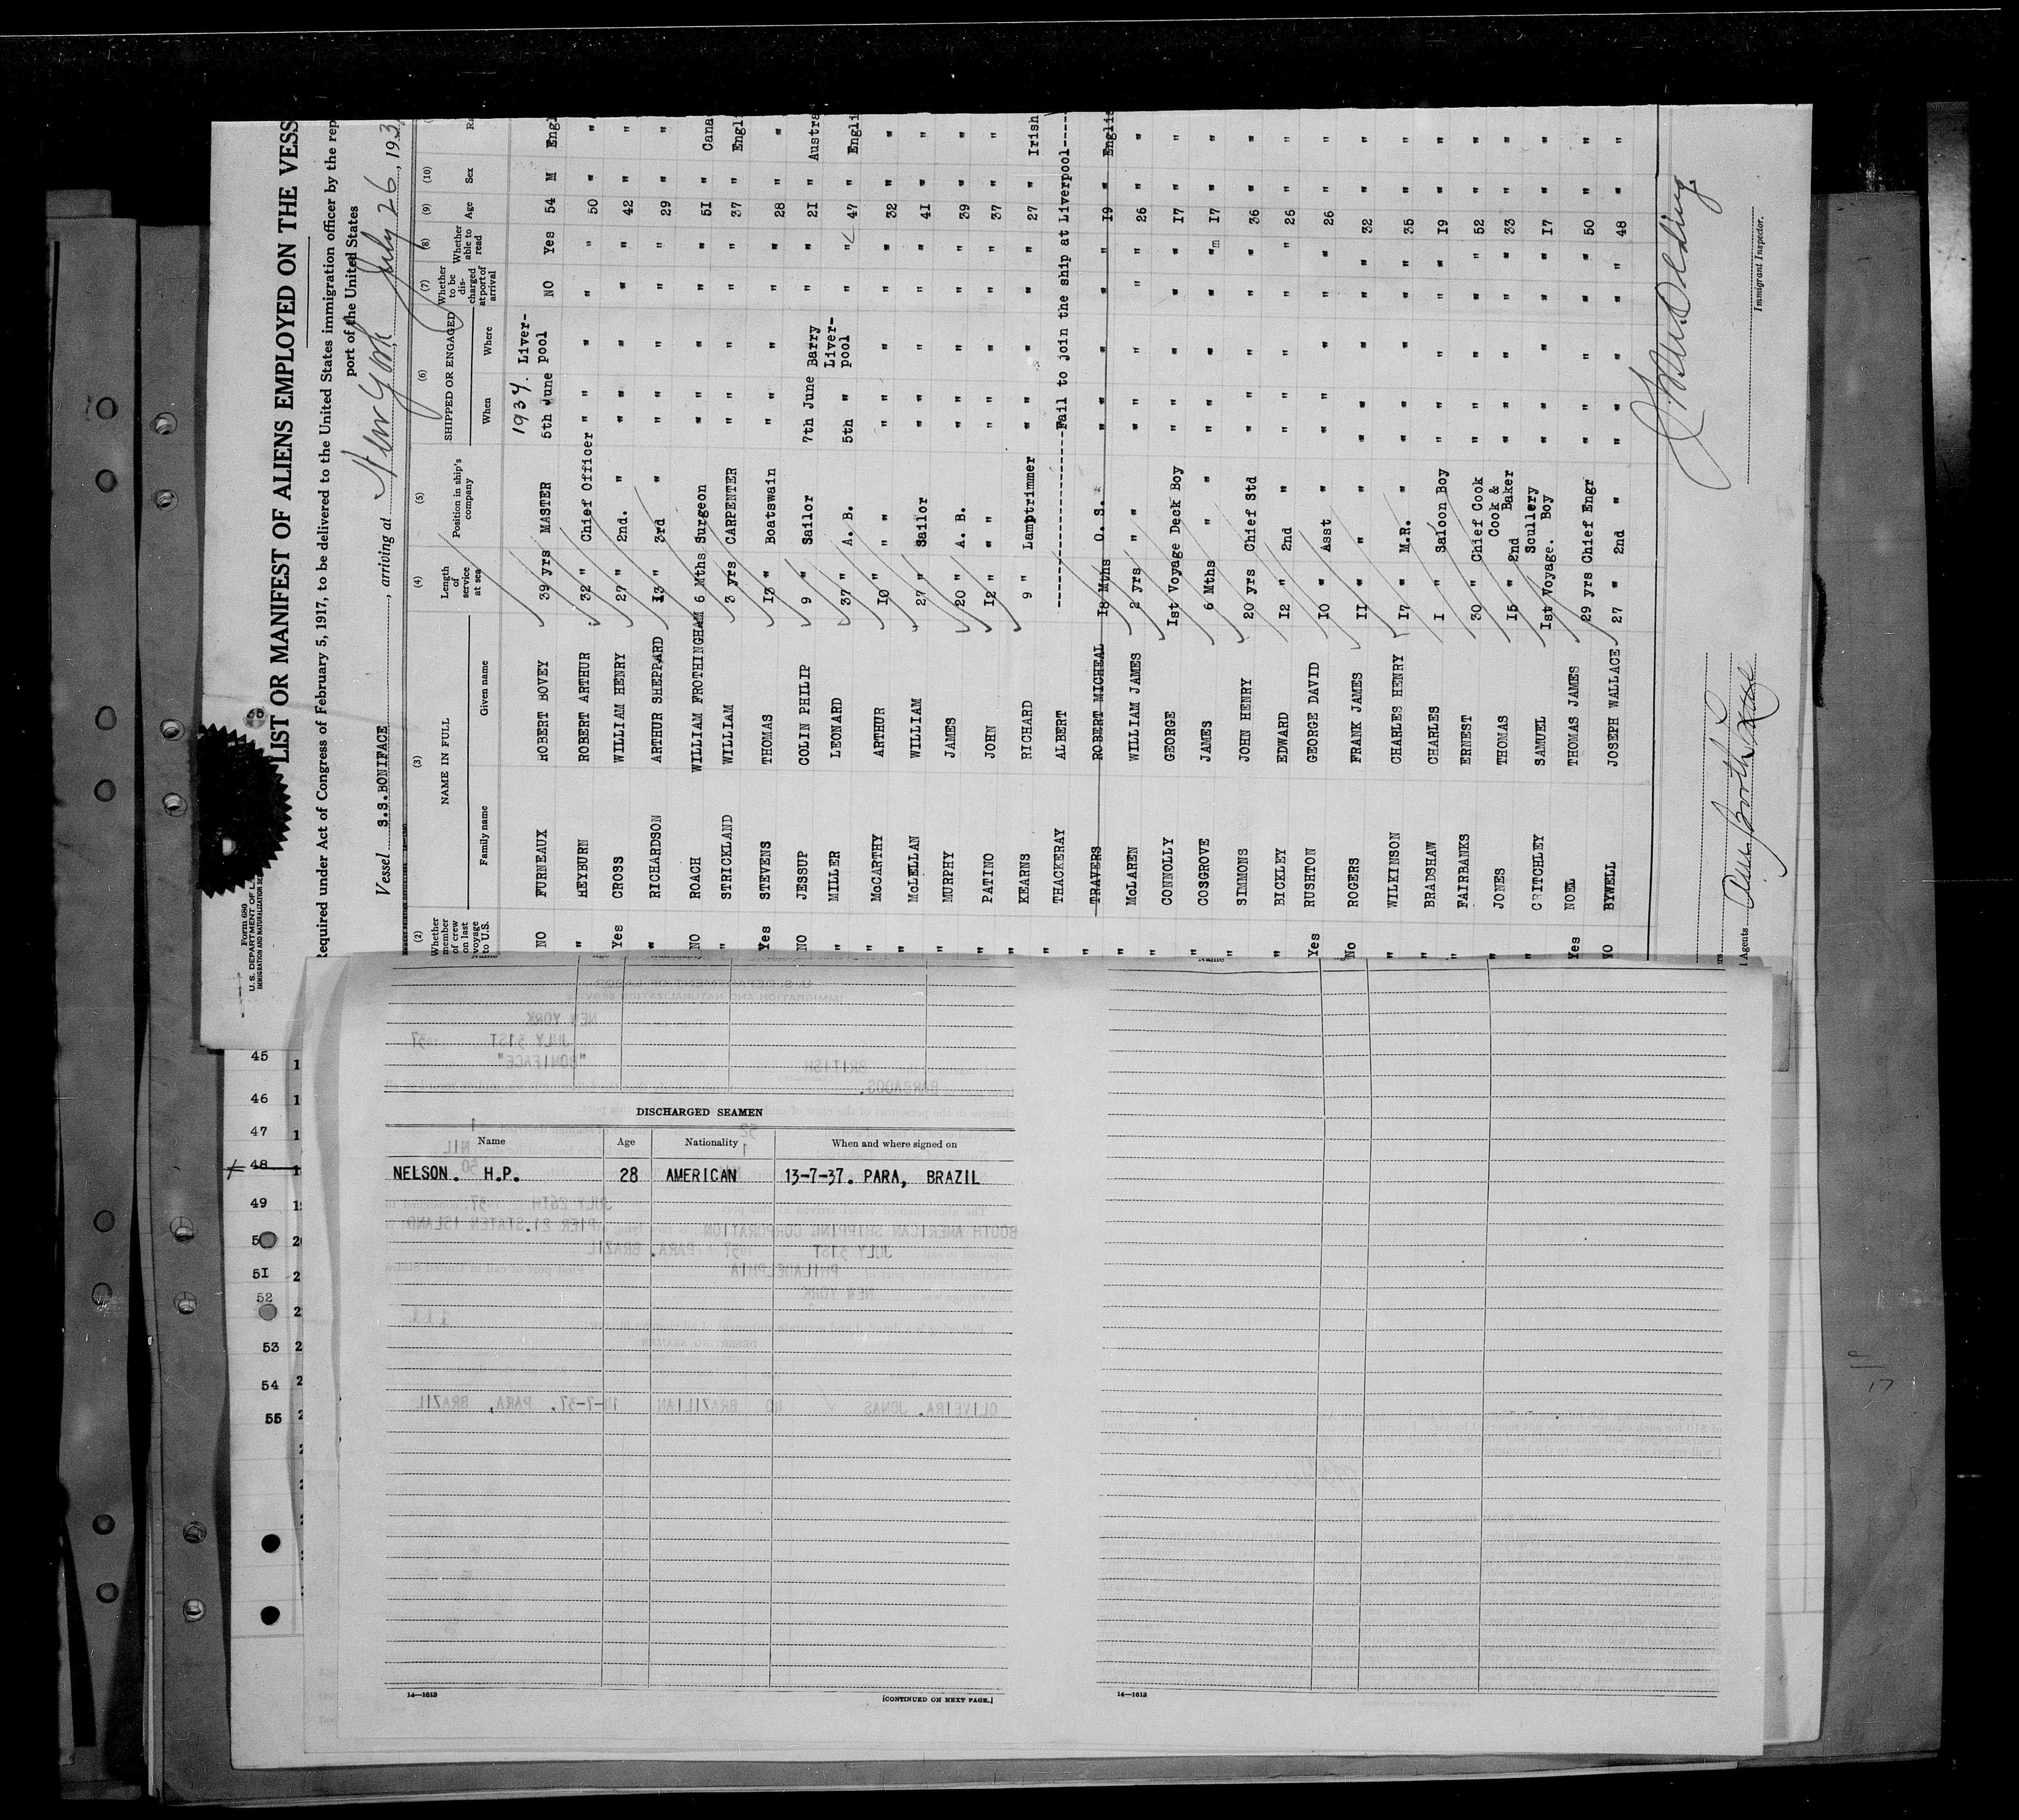 Form 680
U. S. DEPARTMENT OF L
IMMIGRATION AND NATURALIZATION SE
LIST OR MANIFEST OF ALIENS EMPLOYED ON THE VESS
Required under Act of Congress of February 5, 1917, to be delivered to the United States immigration officer by the rep
port of the United States
Vessel S.S.BONIFACE, arriving at New York July 26, 193
(2) (3) (4) (5) (6) (7) (8) (9) (10)
Whether member of crew on last voyage to U.S. NAME IN FULL Family name Given name Length of service at sea Position in ship's company SHIPPED OR ENGAGED When Where Whether to be discharged at port of arrival Whether able to read Age Sex Ra
1937. Liver-
NO FURNEAUX ROBERT BOVEY 39 yrs MASTER 5th June pool NO Yes 54 M Engl
" HEYBURN ROBERT ARTHUR 32 " Chief Officer " " " " " 50 " "
Yes CROSS WILLIAM HENRY 27 " 2nd. " " " " " " 42 " "
" RICHARDSON ARTHUR SHEPPARD 13 " 3rd " " " " " " 29 " "
NO ROACH WILLIAM FROTHINGHAM 6 Mths Surgeon " " " " " 51 " Cana
" STRICKLAND WILLIAM 3 yrs CARPENTER " " " " " 37 " Engli
Yes STEVENS THOMAS 13 " Boatswain " " " " " 28 " "
NO JESSUP COLIN PHILIP 9 " Sailor 7th June Barry " " 21 " Austra
" MILLER LEONARD 37 " A. B. 5th " Liver-pool " " 47 " Engli
" McCARTHY ARTHUR 10 " " " " " " " " 32 " "
" McLELLAN WILLIAM 27 " Sailor " " " " " 41 " "
" MURPHY JAMES 20 " A. B. " " " " " 39 " "
" PATINO JOHN 12 " " " " " " " " 37 " "
" KEARNS RICHARD 9 " Lamptrimmer " " " " " 27 " Irish
" THACKERAY ALBERT ----------Fail to join the ship at Liverpool----
" TRAVERS ROBERT MICHEAL 18 Mths O. S. " " " " " 19 " Englis
" McLAREN WILLIAM JAMES 2 yrs " " " " " " " 26 " "
" CONNOLLY GEORGE 1st Voyage Deck Boy " " " " " 17 " "
" COSGROVE JAMES 6 Mths " " " " " " " 17 " "
" SIMMONS JOHN HENRY 20 yrs Chief Std " " " " " 36 " "
" BICKLEY EDWARD 12 " 2nd " " " " " " 26 " "
Yes RUSHTON GEORGE DAVID 10 " Asst " " " " " " 26 " "
No ROGERS FRANK JAMES 11 " " " " " " " 32 " "
" WILKINSON CHARLES HENRY 17 " M.R. " " " " " " 35 " "
" BRADSHAW CHARLES 1 " Saloon Boy " " " " " 19 " "
" FAIRBANKS ERNEST 30 " Chief Cook " " " " " 52 " "
" JONES THOMAS 15 " 2nd Cook & Baker " " " " " 33 " "
" CRITCHLEY SAMUEL 1st Voyage. Scullery Boy " " " " " 17 " "
Yes NOEL THOMAS JAMES 29 yrs Chief Engr " " " " " 50 " "
NO BYWELL JOSEPH WALLACE 27 " 2nd " " " " " " 48 " "
Agents
Immigrant Inspector.
45
46
47
48
49
51
52
53
54
55
DISCHARGED SEAMEN
Name Age Nationality When and where signed on
NELSON. H.P. 28 AMERICAN 13-7-37. PARA, BRAZIL
14—1613
[CONTINUED ON NEXT PAGE.]
14—1613